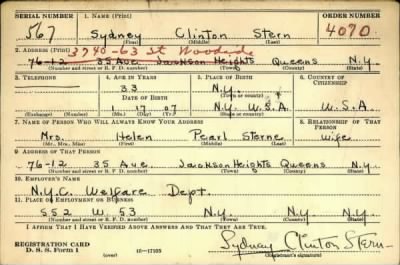 SERIAL NUMBER 1. NAME (Print) ORDER NUMBER
567 Sydney Clinton Stern 4070
(First) (Middle) (Last)
2. ADDRESS (Print) 3940-63 St Woodside
76-12 35 Ave. Jackson Heights Queens N.Y.
(Number and street or R. F. D. number) (Town) (County) (State)
3. TELEPHONE 4. AGE IN YEARS 5. PLACE OF BIRTH 6. COUNTRY OF CITIZENSHIP
33 N.Y.
DATE OF BIRTH (Town or county)
17 07 N.Y. U.S.A. U.S.A
(Exchange) (Number) (Mo.) (Day) (Yr.) (State or country)
7. NAME OF PERSON WHO WILL ALWAYS KNOW YOUR ADDRESS 8. RELATIONSHIP OF THAT PERSON
Mrs. Helen Pearl Sterne wife
(Mr., Mrs., Miss) (First) (Middle) (Last)
9. ADDRESS OF THAT PERSON
76-12 35 Ave. Jackson Heights Queens N.Y.
(Number and street or R. F. D. number) (Town) (County) (State)
10. EMPLOYER'S NAME
N.Y.C. Welfare Dept.
11. PLACE OF EMPLOYMENT OR BUSINESS
552 W. 53 N.Y. N.Y.
(Number and street or R. F. D. number) (Town) (County) (State)
I AFFIRM THAT I HAVE VERIFIED ABOVE ANSWERS AND THAT THEY ARE TRUE.
REGISTRATION CARD Sydney Clinton Stern
D. S. S. FORM 1 (over) 16-17105 (Registrant's signature)